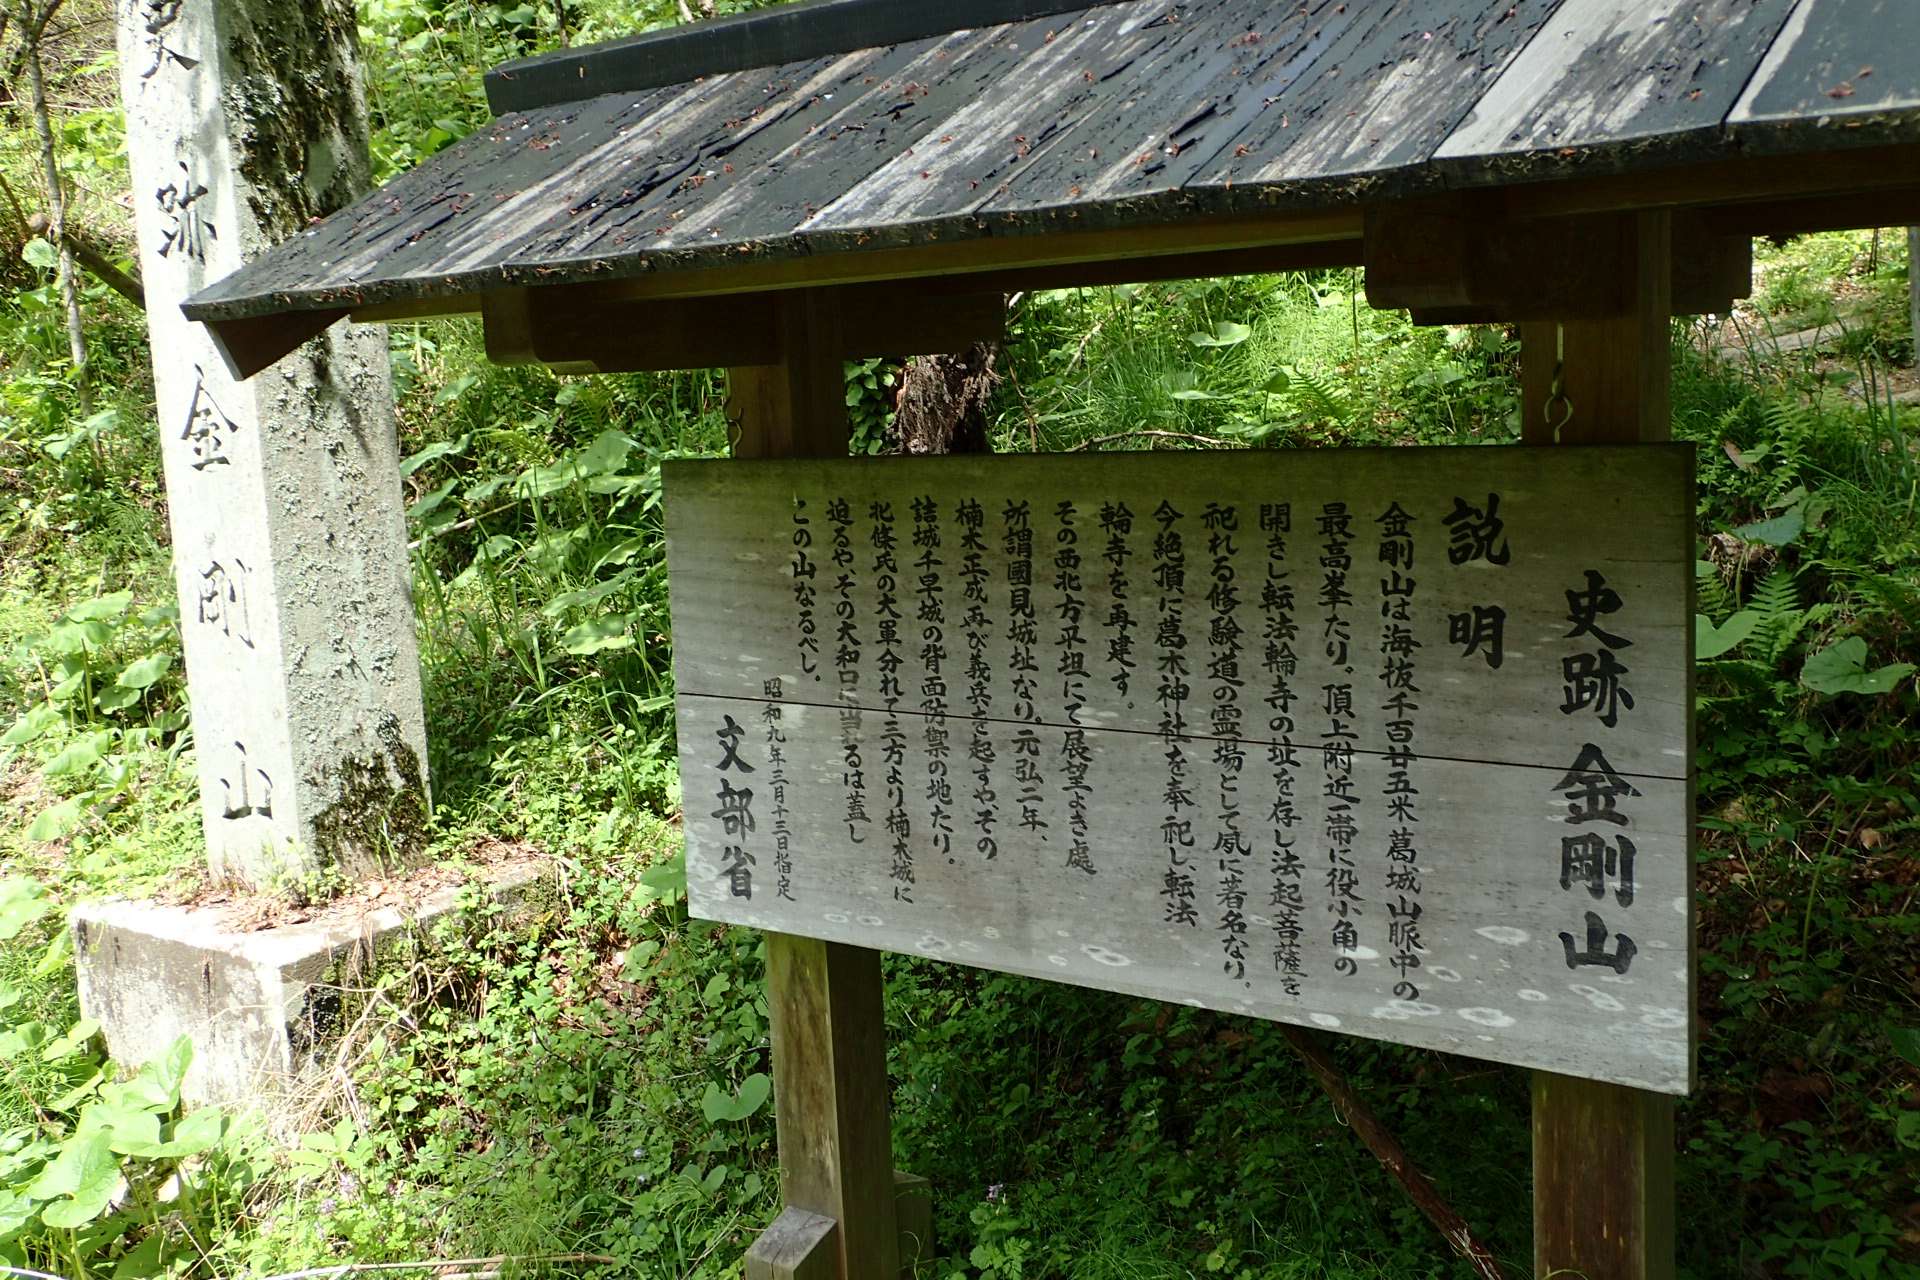 史跡 金剛山
説明
金剛山は海抜千百廿五米葛城山脈中の
最高峯たり。頂上附近一帯に役小角の
開きし転法輪寺の址を存し法起菩薩を
祀れる修験道の霊場として夙に著名なり。
今絶頂に葛木神社を奉祀し、転法
輪寺を再建す。
その西北方平坦にて展望よき處
所謂國見城址なり。元弘二年、
楠木正成再び義兵を起すや、その
詰城千早城の背面防禦の地たり。
北條氏の大軍分れて三方より楠木城に
迫るや、その大和口に当れるは蓋し
この山なるべし。
昭和九年三月十三日指定
文部省
史跡金剛山